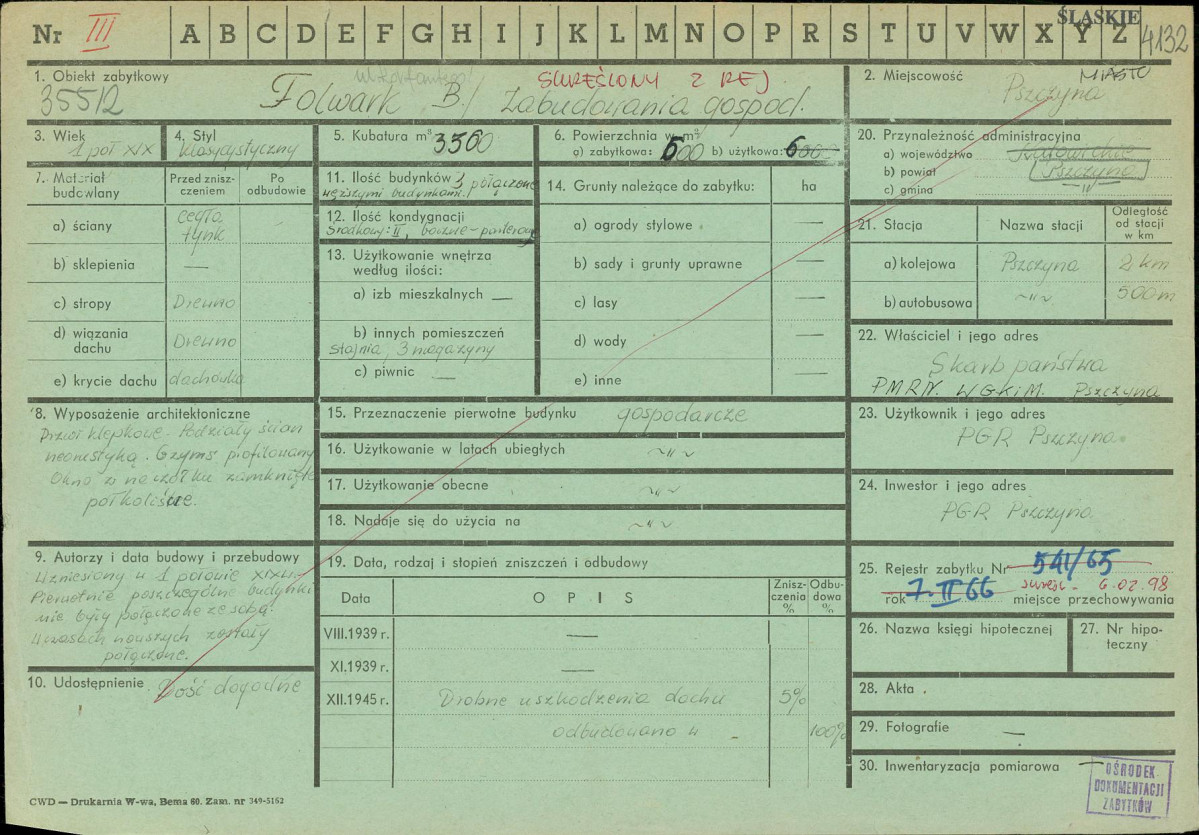 ŚLĄSKIE
Nr III A B C D E F G H I J K L M N O P R S T U V W X Y Z 4132
1. Obiekt zabytkowy
35512
SKREŚLONY Z REJ
Folwark B/ Zabudowania gospod.
2. Miejscowość
MIASTO
Pszczyna
3. Wiek
1 poł XIX
4. Styl
klasycystyczny
5. Kubatura m³ 3500
6. Powierzchnia w m²
a) zabytkowa: 600 b) użytkowa: 600
20. Przynależność administracyjna
a) województwo Katowickie
b) powiat Pszczyna
c) gmina —"—
7. Materiał budowlany
Przed znisz-
czeniem
Po
odbudowie
a) ściany cegła
tynk
b) sklepienia —
c) stropy Drewno
d) wiązania
dachu Drewno
e) krycie dachu dachówka
11. Ilość budynków 3 połączone
węższymi budynkami.
12. Ilość kondygnacji
Środkowy: II, boczne – parterowe
13. Użytkowanie wnętrza
według ilości:
a) izb mieszkalnych —
b) innych pomieszczeń
stajnia, 3 magazyny
c) piwnic —
14. Grunty należące do zabytku: ha
a) ogrody stylowe —
b) sady i grunty uprawne —
c) lasy —
d) wody —
e) inne —
21. Stacja Nazwa stacji Odległość
od stacji
w km
a) kolejowa Pszczyna 2 km
b) autobusowa ~"~ 500 m
22. Właściciel i jego adres
Skarb państwa
PMRN. WGKiM. Pszczyna
8. Wyposażenie architektoniczne
Drzwi klepkowe. Podziały ścian
. Gzyms profilowany
Okno w naczółku zamknięte
półkoliście.
15. Przeznaczenie pierwotne budynku gospodarcze
16. Użytkowanie w latach ubiegłych ~"~
17. Użytkowanie obecne ~"~
18. Nadaje się do użycia na ~"~
23. Użytkownik i jego adres
PGR Pszczyna
24. Inwestor i jego adres
PGR Pszczyna
9. Autorzy i data budowy i przebudowy
Wzniesiony w 1 połowie XIX w.
Pierwotnie poszczególne budynki
nie były połączone ze sobą.
W czasach nowszych zostały
połączone.
10. Udostępnienie Dość dogodne
19. Data, rodzaj i stopień zniszczeń i odbudowy
Data O P I S Znisz-
czenia
% Odbu-
dowa
%
VIII.1939 r. —
XI.1939 r. —
XII.1945 r. Drobne uszkodzenia dachu 5%
odbudowano w — 100%
25. Rejestr zabytku Nr 541/65
skreśl. 6.02.98
rok 7.II 66 miejsce przechowywania
26. Nazwa księgi hipotecznej
27. Nr hipo-
teczny
28. Akta
29. Fotografie —
30. Inwentaryzacja pomiarowa —
OŚRODEK
DOKUMENTACJI
ZABYTKÓW
CWD — Drukarnia W-wa, Bema 60. Zam. nr 349-5162